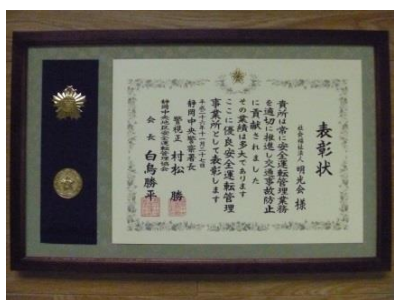 表彰状
社会福祉法人 明光会 様
貴所は常に安全運転管理業務
を適切に推進し交通事故防止
に貢献されました
その業績は多大であります
ここに優良安全運転管理
事業所として表彰します
平成二十六年十一月二十七日
静岡中央警察署長
警視正 村松 勝
静岡中央地区安全運転管理協会
会長 白鳥勝平